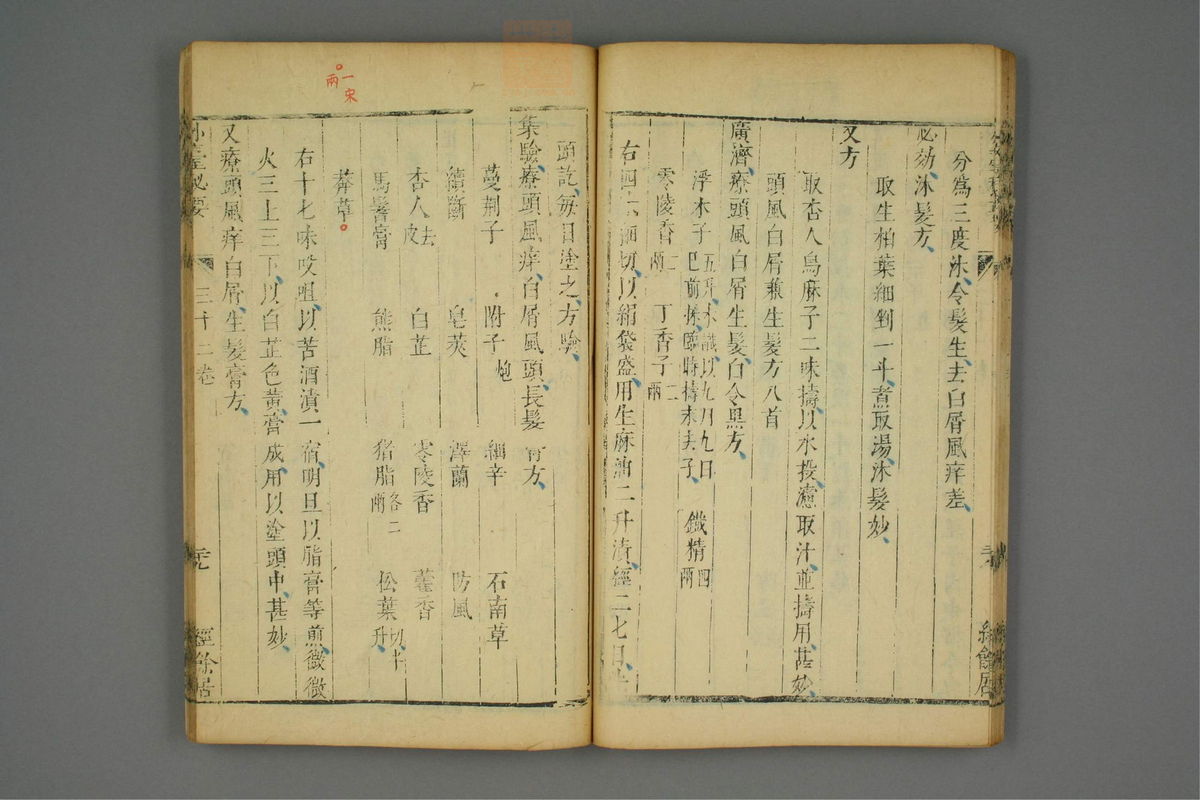 分爲三度沐令髮生去白屑風痒差
必効沐髮方
取生柏葉細剉一斗煮取湯沐髮妙
又方
取杏人烏麻子二味擣以水投濾取汁並擣用甚妙
頭風白屑兼生髮方八首
廣濟療頭風白屑生髮白令黑方
浮木子五升未識以九月九日已前採臨時擣末去子 鐵精四兩
零陵香二兩 丁香子二兩
右四六細切以絹袋盛用生麻油二升漬經二七日
頭訖每日塗之方驗
集驗療頭風痒白屑風頭長髮膏方
蔓荆子 附子炮 細辛 石南草
續斷 皂莢 澤蘭 防風
杏人去皮 白芷 零陵香 藿香
馬鬐膏 熊脂 猪脂各二兩 松葉切十升
莽草
一宋
兩
右十七味㕮咀以苦酒漬一宿明旦以脂膏等煎微微
火三上三下以白芷色黄膏成用以塗頭中甚妙
又療頭風痒白屑生髮膏方
外臺秘要 三十二卷 經餘居